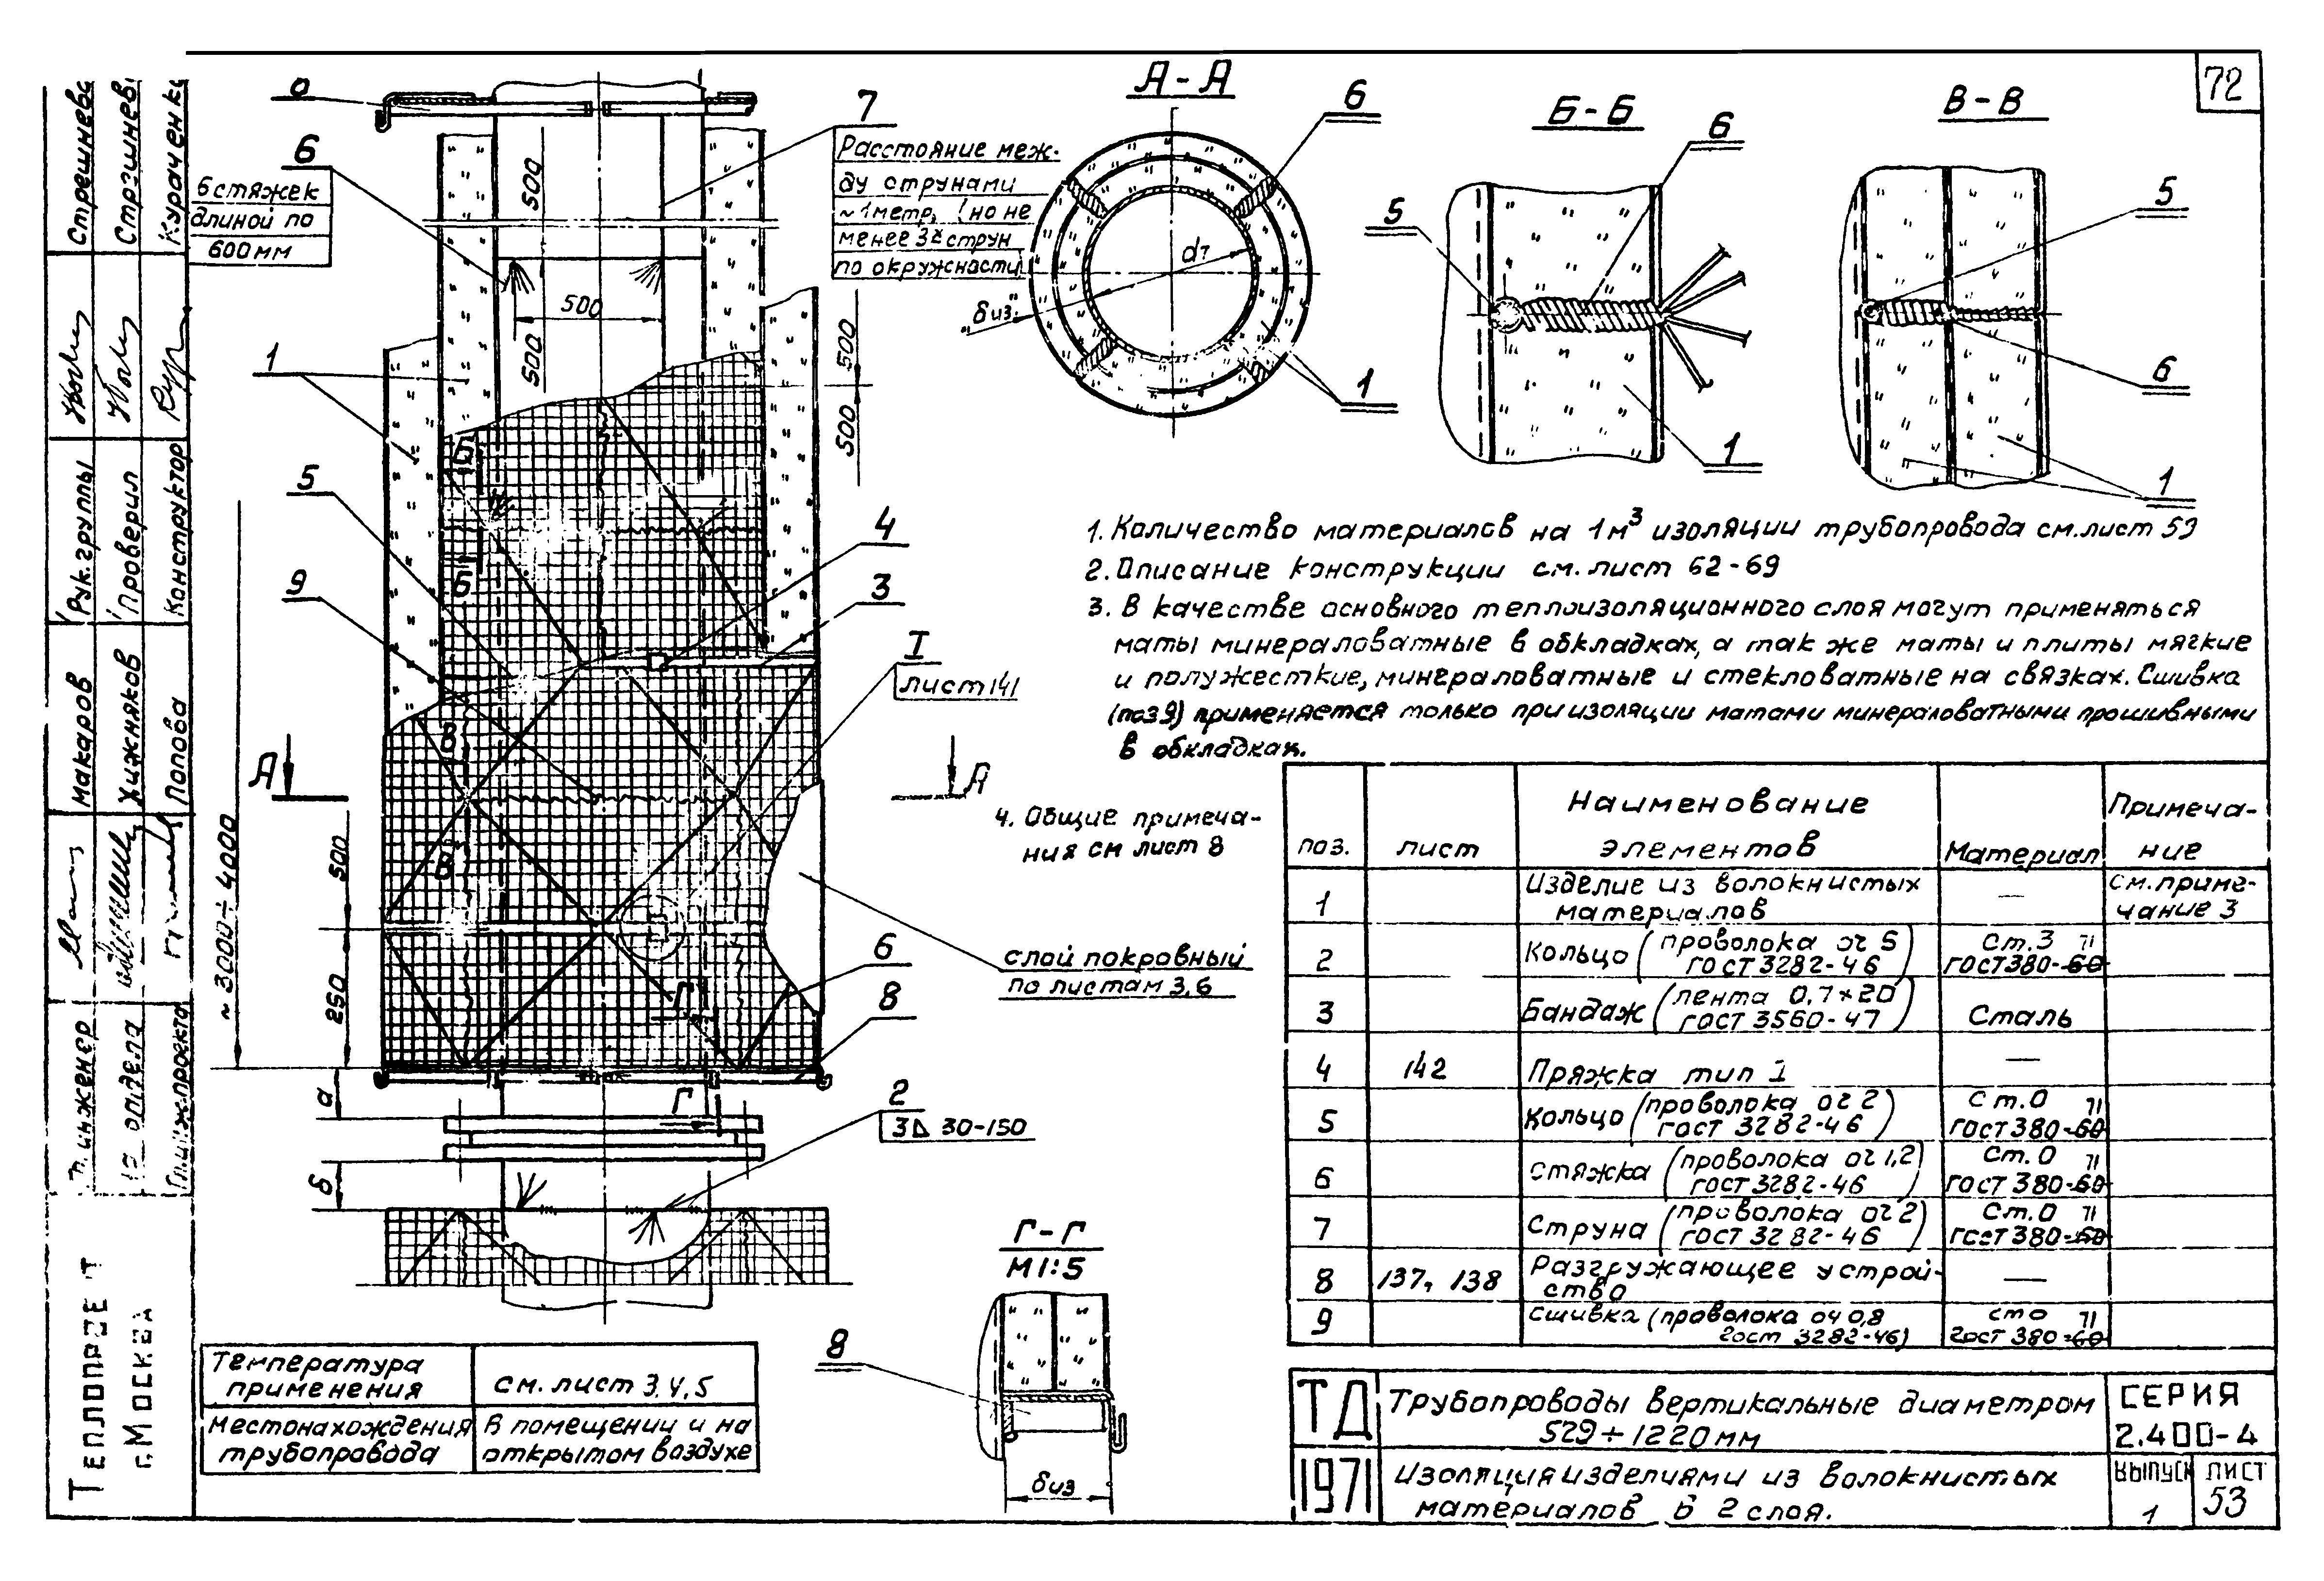 72
Стрешнева
Рук.группы
Проверил
Конструктор
Макаров
Хижняков
Попова
Теплопроект
г.Москва
6
6 стяжек
длиной по
600мм
7
Расстояние меж-
ду струнами
~1метр, (но не
менее 3х струн
по окружности
500
500
500
500
500
1
5
9
4
3
I
лист 141
Б
Б
В
В
А
А
~3000÷4000
500
250
а
б
Г
Г
слой покровный
по листам 3,6
6
8
2
3Δ 30-150
А-А
6
dт
"δиз"
1
Б-Б
6
5
1
В-В
5
6
1
1. Количество материалов на 1м³ изоляции трубопровода см.лист 59
2. Описание конструкции см. лист 62-69
3. В качестве основного теплоизоляционного слоя могут применяться
маты минераловатные в обкладках, а так же маты и плиты мягкие
и полужесткие, минераловатные и стекловатные на связках. Сшивка
(поз 9) применяется только при изоляции матами минераловатными прошивными
в обкладках.
4. Общие примеча-
ния см лист 8
поз. лист Наименование элементов Материал Примеча-
ние
1 Изделие из волокнистых — см.приме-
материалов чание 3
2 Кольцо (проволока оч 5 Ст.3 71
ГОСТ 3282-46) ГОСТ 380-60
3 Бандаж (лента 0,7×20 Сталь
ГОСТ 3560-47)
4 142 Пряжка тип I —
5 Кольцо (проволока оч 2 Ст.0 71
ГОСТ 3282-46) ГОСТ 380-60
6 Стяжка (проволока оч 1,2 Ст.0 71
ГОСТ 3282-46) ГОСТ 380-60
7 Струна (проволока оч 2 Ст.0 71
ГОСТ 3282-46) ГОСТ 380-60
8 137, 138 Разгружающее устрой- —
ство
9 Сшивка (проволока оч 0,8 ст0 71
ГОСТ 3282-46) ГОСТ 380-60
Г-Г
М1:5
8
δиз
Температура см. лист 3,4,5
применения
Местонахождения В помещении и на
трубопровода открытом воздухе
ТД
1971
Трубопроводы вертикальные диаметром
529÷1220мм
Изоляция изделиями из волокнистых
материалов в 2 слоя.
СЕРИЯ
2.400-4
ВЫПУСК ЛИСТ
1 53